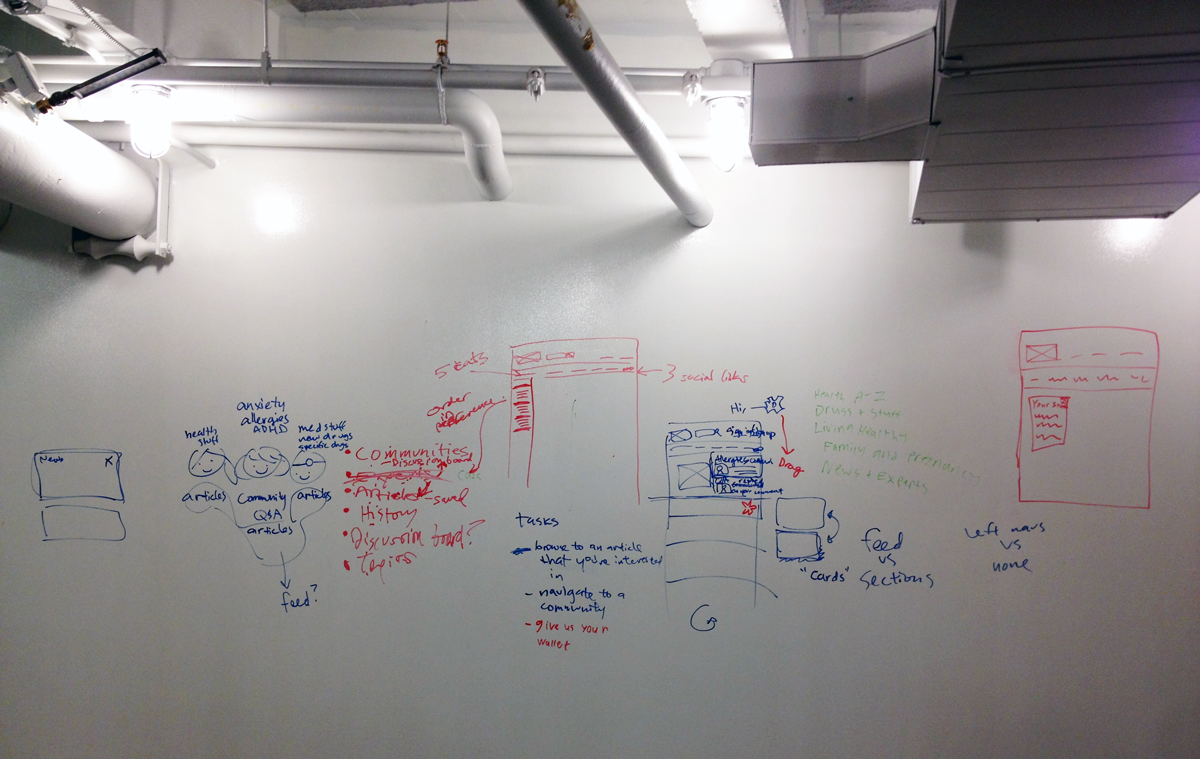 Needs
X
health
stuff
anxiety
allergies
ADHD
med stuff
new drugs
specific drugs
articles
Community
Q&A
articles
articles
feed?
• Communities
- Discussion board
• Articles - saved
• History
• Discussion board?
• Topics
order
preference
3 social links
tasks
- browse to an article
that you're interested
in
- navigate to a
community
- give us your
wallet
Hi!
Drag
sign up
Health A-Z
Drugs + Stuff
Living Healthy
Family and Pregnancy
News + Experts
"Cards"
feed
vs
sections
left navs
vs
none
Your Stuff